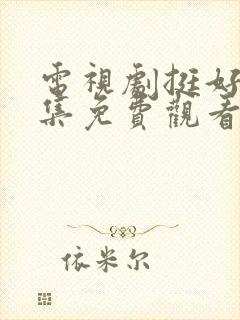 電視劇挺好
集免費觀看
依米尔